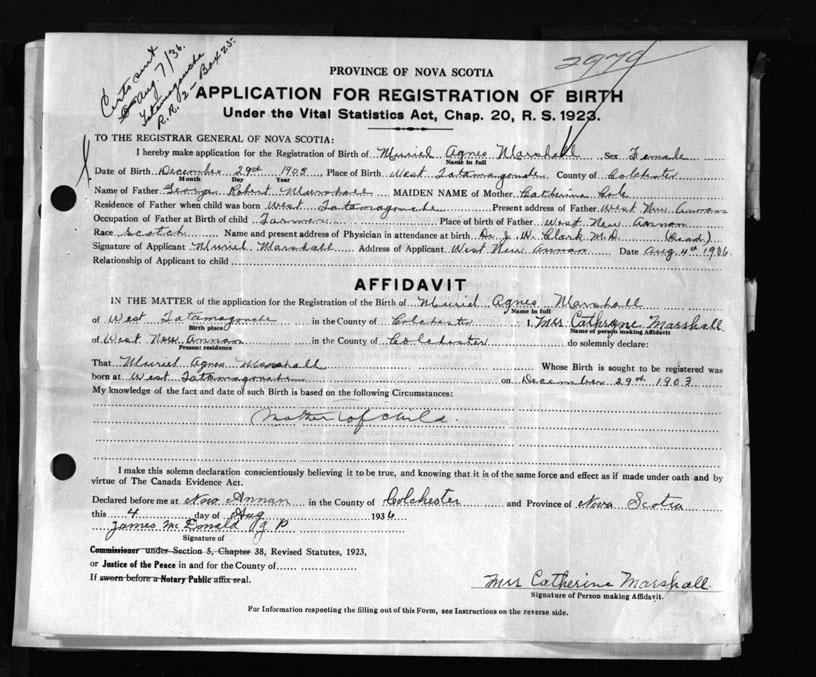 Certs sent
Aug. 7/36.
Tatamagouche
R.R. 2 - Box 25.
2979
PROVINCE OF NOVA SCOTIA
APPLICATION FOR REGISTRATION OF BIRTH
Under the Vital Statistics Act, Chap. 20, R. S. 1923.
TO THE REGISTRAR GENERAL OF NOVA SCOTIA:
I hereby make application for the Registration of Birth of Muriel Agnes Marshall Sex Female
Name in full
Date of Birth December 29th 1903 Place of Birth West Tatamagouche County of Colchester
Month Day Year
Name of Father George Robert Marshall MAIDEN NAME of Mother Catherine Cole
Residence of Father when child was born West Tatamagouche Present address of Father West New Annan
Occupation of Father at Birth of child Farmer Place of birth of Father West New Annan
Race Scotch Name and present address of Physician in attendance at birth Dr. J. W. Clark M.D. (Dead)
Signature of Applicant Muriel Marshall Address of Applicant West New Annan Date Aug 4th 1936
Relationship of Applicant to child
AFFIDAVIT
IN THE MATTER of the application for the Registration of the Birth of Muriel Agnes Marshall
Name in full
of West Tatamagouche in the County of Colchester I, Mrs Cathryne Marshall
Birth place Name of person making Affidavit
of West New Annan in the County of Colchester do solemnly declare:
Present residence
That Muriel Agnes Marshall Whose Birth is sought to be registered was
born at West Tatamagouche on December 29th 1903
My knowledge of the fact and date of such Birth is based on the following Circumstances:
Mother of child.
I make this solemn declaration conscientiously believing it to be true, and knowing that it is of the same force and effect as if made under oath and by
virtue of The Canada Evidence Act.
Declared before me at New Annan in the County of Colchester and Province of Nova Scotia
this 4 day of Aug 1936
James McDonald J P
Signature of
Commissioner under Section 5, Chapter 38, Revised Statutes, 1923,
or Justice of the Peace in and for the County of
If sworn before a Notary Public affix seal.
Mrs Catherine Marshall.
Signature of Person making Affidavit.
For Information respecting the filling out of this Form, see Instructions on the reverse side.